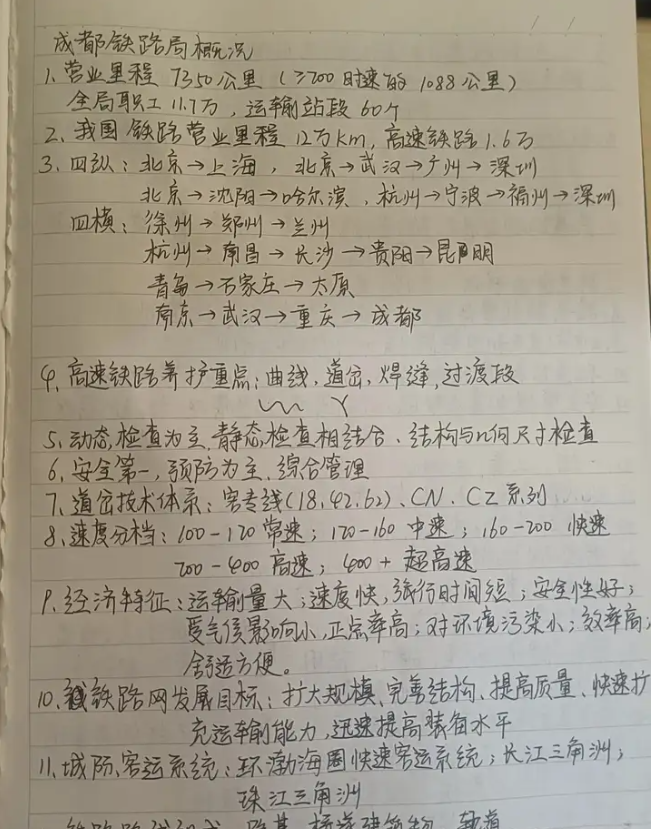 成都铁路局概况
1、营业里程 7350公里（≥200时速的1088公里）
全局职工11.7万，运输站段60个
2、我国铁路营业里程12万km，高速铁路1.6万
3、四纵：北京→上海，北京→武汉→广州→深圳
北京→沈阳→哈尔滨，杭州→宁波→福州→深圳
四横：徐州→郑州→兰州
杭州→南昌→长沙→贵阳→昆明
青岛→石家庄→太原
南京→武汉→重庆→成都
4、高速铁路养护重点：曲线，道岔，焊缝，过渡段
5、动态检查为主，静态检查相结合、结构与几何尺寸检查
6、安全第一，预防为主，综合管理
7、道岔技术体系：客专线（18，42，62）、CN、CZ系列
8、速度分档：100-120常速；120-160中速；160-200快速
200-400高速；400+超高速
9、经济特征：运输量大；速度快，旅行时间短；安全性好；
受气侯影响小，正点率高；对环境污染小；效率高；
舒适方便。
10、铁路网发展目标：扩大规模、完善结构、提高质量、快速扩
充运输能力，迅速提高装备水平
11、城际客运系统：环渤海圈快速客运系统；长江三角洲；
珠江三角洲